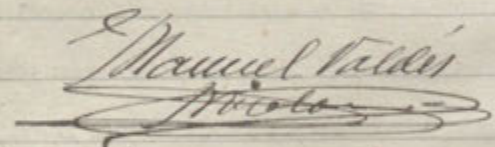 Manuel Valdés